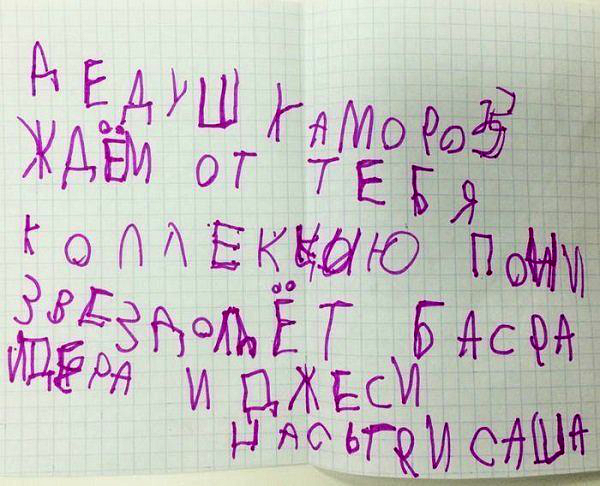 ДЕДУШКАМОРОЗ
ЖДЁМ ОТ ТЕБЯ
КОЛЛЕКЦИЮ ПОНИ
ЗВЕЗДОЛЁТ БАСРА
ИДЕРА И ДЖЕСИ
НАСЬТЯ И САША